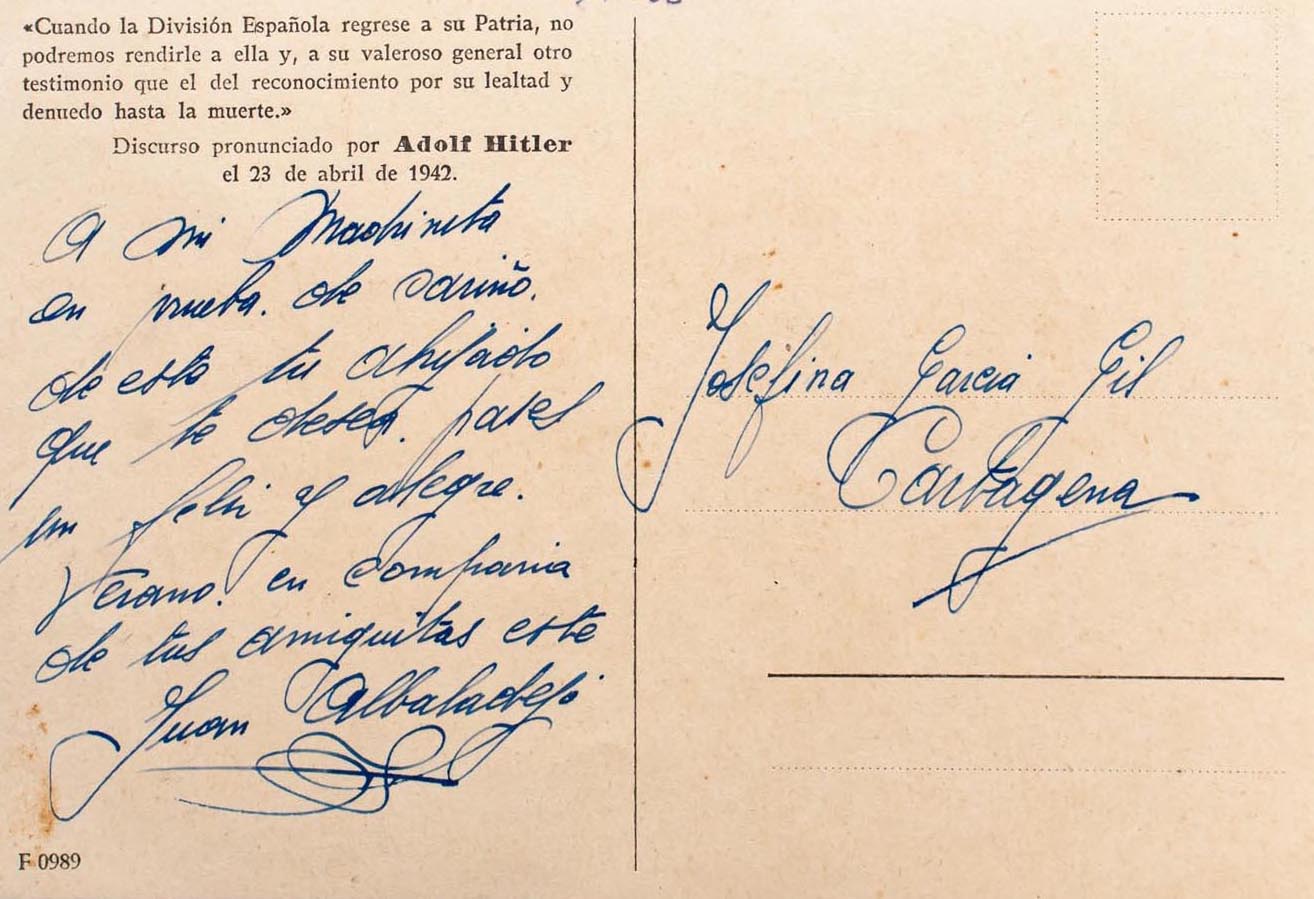 «Cuando la División Española regrese a su Patria, no
podremos rendirle a ella y, a su valeroso general otro
testimonio que el del reconocimiento por su lealtad y
denuedo hasta la muerte.»
Discurso pronunciado por Adolf Hitler
el 23 de abril de 1942.
A mi Madrineta
en prueba. de cariño.
de este tu ahijado
que te desea. pases
un feliz y alegre.
Verano. en compania
de tus amiguitas este
Juan Albaladejo
F 0989
Josefina Garcia Gil
Cartagena